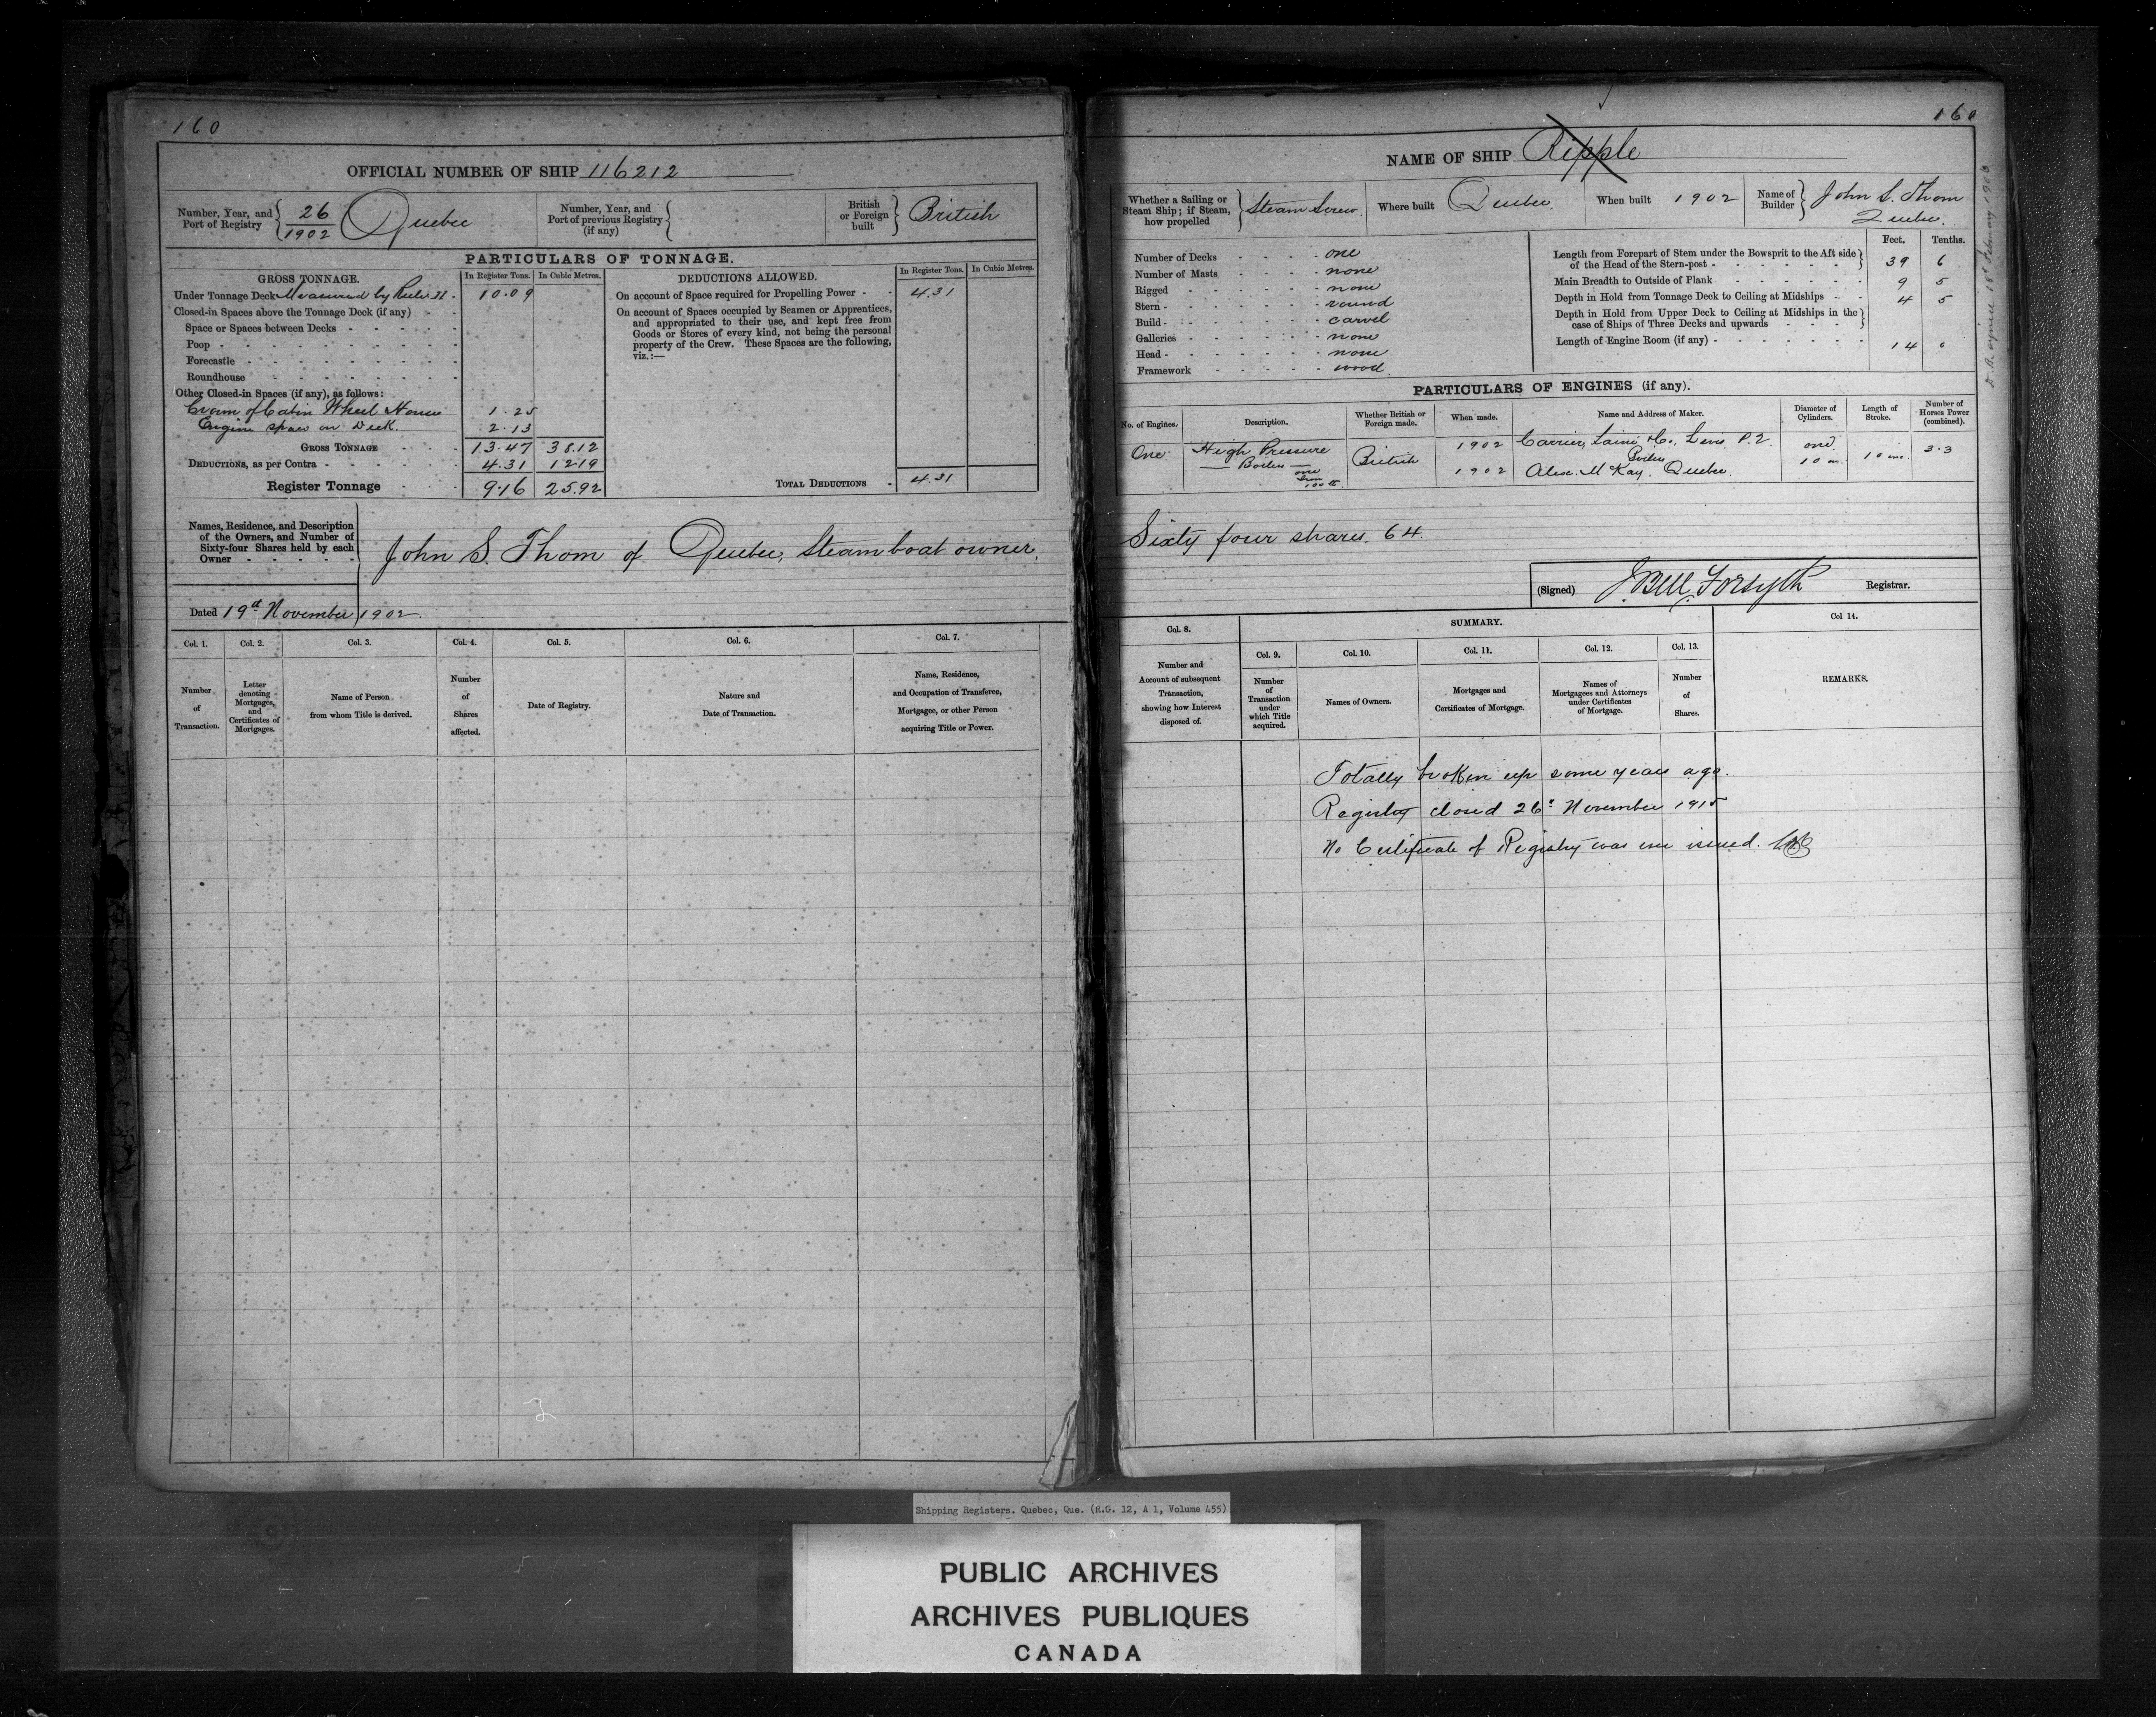 160
OFFICIAL NUMBER OF SHIP 116212
Number, Year, and Port of Registry { 26/1902 Quebec
Number, Year, and Port of previous Registry (if any) {
British or Foreign built } British
PARTICULARS OF TONNAGE.
GROSS TONNAGE. In Register Tons. In Cubic Metres.
Under Tonnage Deck Measured by Rule II - 10.09
Closed-in Spaces above the Tonnage Deck (if any) - -
Space or Spaces between Decks - - - - -
Poop - - - - - - - -
Forecastle - - - - - - -
Roundhouse - - - - - -
Other Closed-in Spaces (if any), as follows:
Crown of Cabin Wheel House 1.25
Engine space on Deck. 2.13
GROSS TONNAGE - - - 13.47 38.12
DEDUCTIONS, as per Contra - - - - - 4.31 12.19
Register Tonnage - - 9.16 25.92
DEDUCTIONS ALLOWED. In Register Tons. In Cubic Metres.
On account of Space required for Propelling Power - - 4.31
On account of Spaces occupied by Seamen or Apprentices,
and appropriated to their use, and kept free from
Goods or Stores of every kind, not being the personal
property of the Crew. These Spaces are the following,
viz.:—
TOTAL DEDUCTIONS - 4.31
Names, Residence, and Description
of the Owners, and Number of
Sixty-four Shares held by each
Owner - - - - -
John S. Thom of Quebec, Steamboat owner,
Dated 19th November 1902.
Col. 1. Col. 2. Col. 3. Col. 4. Col. 5. Col. 6. Col. 7.
Number of Transaction.
Letter denoting Mortgages, and Certificates of Mortgages.
Name of Person from whom Title is derived.
Number of Shares affected.
Date of Registry.
Nature and Date of Transaction.
Name, Residence, and Occupation of Transferee, Mortgagee, or other Person acquiring Title or Power.
160
NAME OF SHIP Ripple
Whether a Sailing or Steam Ship; if Steam, how propelled } Steam Screw.
Where built Quebec.
When built 1902
Name of Builder } John S. Thom Quebec.
Number of Decks - - - - one
Number of Masts - - - - none
Rigged - - - - - - none
Stern - - - - - - round
Build - - - - - - carvel
Galleries - - - - - none
Head - - - - - - none
Framework - - - - - wood.
Feet. Tenths.
Length from Forepart of Stem under the Bowsprit to the Aft side
of the Head of the Stern-post - - - - - - } 39 6
Main Breadth to Outside of Plank - - - - - - 9 5
Depth in Hold from Tonnage Deck to Ceiling at Midships - - 4 5
Depth in Hold from Upper Deck to Ceiling at Midships in the
case of Ships of Three Decks and upwards - - - - }
Length of Engine Room (if any) - - - - - - - 14 0
PARTICULARS OF ENGINES (if any).
No. of Engines. Description. Whether British or Foreign made. When made. Name and Address of Maker. Diameter of Cylinders. Length of Stroke. Number of Horses Power (combined).
One High Pressure British 1902 Carrier, Lainé & Co., Levis P.Q. one 10 in. 10 ins. 3.3
Boilers one iron 100 lb. 1902 Boilers Alex. McKay, Quebec.
Sixty four shares. 64.
(Signed) J Bell Forsyth Registrar.
SUMMARY.
Col. 8. Col. 9. Col. 10. Col. 11. Col. 12. Col. 13. Col 14.
Number and Account of subsequent Transaction, showing how Interest disposed of.
Number of Transaction under which Title acquired.
Names of Owners.
Mortgages and Certificates of Mortgage.
Names of Mortgagees and Attorneys under Certificates of Mortgage.
Number of Shares.
REMARKS.
Totally broken up some years ago.
Registry closed 26th November 1915
No Certificate of Registry was ever issued.
Shipping Registers. Quebec, Que. (R.G. 12, A 1, Volume 455)
PUBLIC ARCHIVES
ARCHIVES PUBLIQUES
CANADA